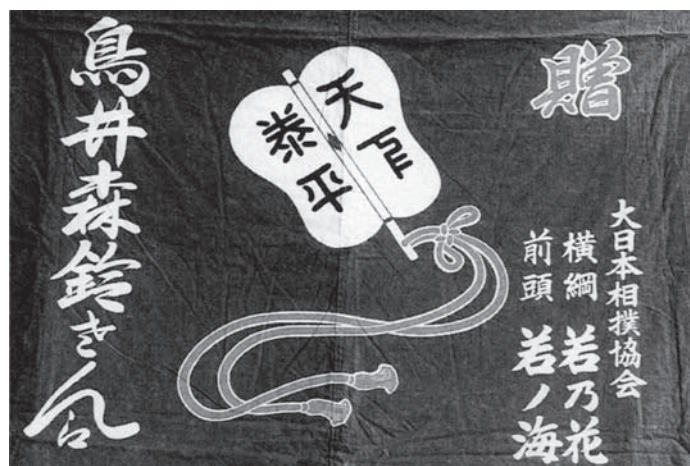 贈
大日本相撲協会
横綱 若乃花
前頭 若ノ海
天下
泰平
鳥井森鈴